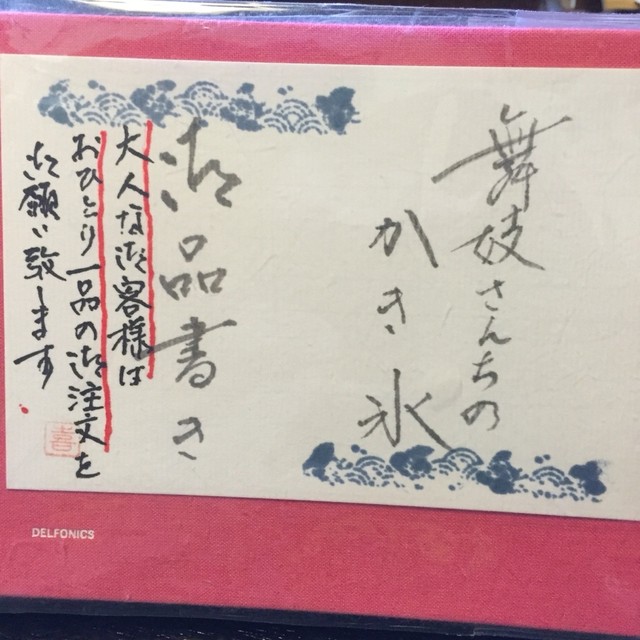 舞妓さんちの
かき氷
御品書き
大人な御客様は
おひとり一品の御注文を
御願い致します
喜
DELFONICS